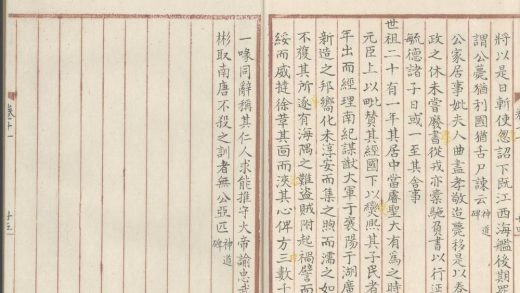 將以是日斬使忽詔下既江西海艦後期罪
謂公薨猶利國猶古尸諫云 神道碑
公家居事妣夫人曲盡孝敬迨薨移是以奉
政之休未嘗廢書從戎亦橐駞負書以行
毓德諸子日或一至其舍事
世祖二十有一年其居中當膺聖大有為之時
元臣上以毗賛其經國下以爕熙其子民者
年出而經理南紀謀猷大軍于襄陽于湖廣
新造之邦嚮化未淳安而集之煦而濡之如
不獲其所遂有海隅之難盜賊附起禍譬而
綏而威撻徐革其面而浹其心俾方三數千
一喙同辭稱其仁人求能推守大帝諭忠武
彬取南唐不殺之訓者無公亞匹 神道碑
卷十一
十三